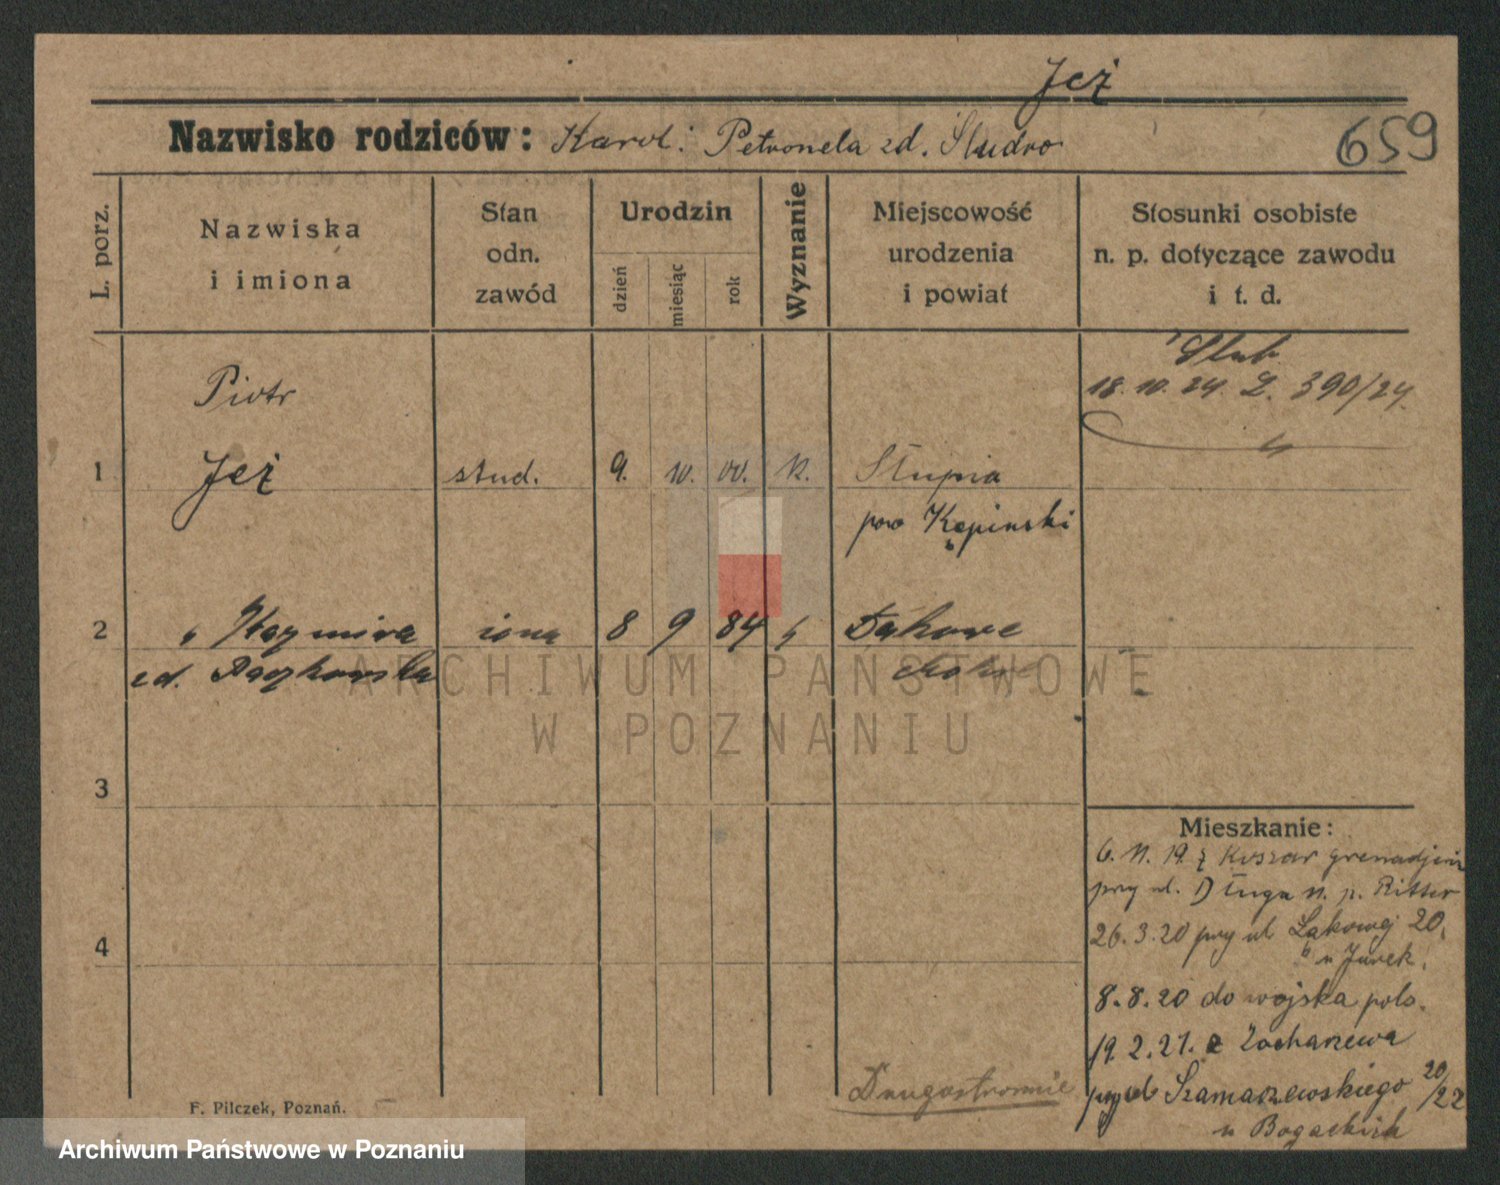 Jeż
Nazwisko rodziców: Karol. Petronela zd. Sludro
659
L. porz.
Nazwiska
i imiona
Stan
odn.
zawód
Urodzin
dzień
miesiąc
rok
Wyznanie
Miejscowość
urodzenia
i powiat
Stosunki osobiste
n. p. dotyczące zawodu
i t. d.
Ślub
18. 10. 24. L. 390/24.
Piotr
1 Jeż stud. 9. 10. 00. k. Słupia
pow Kępinski
2 " Kazmira żona 8 9 84 Dąkowe
zd. Raczkowska
3
4
Mieszkanie:
6. 11. 19. z Koszar grenadjerów
przy ul. Długa 11. p. Ritter
26. 3. 20 przy ul Łąkowej 20,
u Jurek.
8. 8. 20 do wojska pols.
19. 2. 21. z Zocharzewa
przy ul Szamarzewskiego 20/22
u Bogackich
Drugostronnie
F. Pilczek, Poznań.
ARCHIWUM PAŃSTWOWE
W POZNANIU
Archiwum Państwowe w Poznaniu